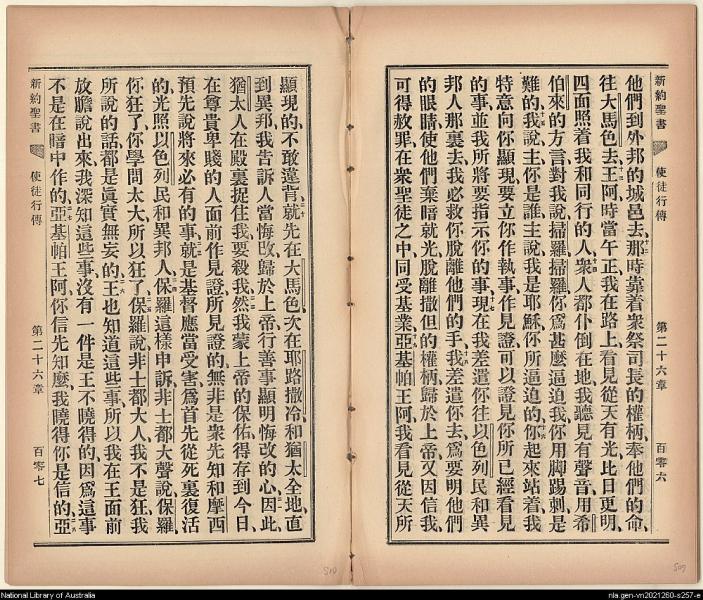 新約聖書 使徒行傳 第二十六章 百零六
他們到外邦的城邑去、那時靠着衆祭司長的權柄、奉他們的命、
往大馬色去、王阿、時當午正、我在路上、看見從天有光、比日更明、
四面照着我和同行的人、衆人都仆倒在地、我聽見有聲音、用希
伯來的方言對我說、掃羅掃羅、你爲甚麼逼迫我、你用脚踢刺是
難的、我說、主你是誰、主說、我是耶穌、你所逼迫的、你起來站着、我
特意向你顯現、要立你作執事、作見證、可以證見你所已經看見
的事、並我所將要指示你的事、現在我差遣你往以色列民和異
邦人那裏去、我必救你脫離他們的手、我差遣你去、爲要明他們
的眼睛、使他們棄暗就光、脫離撒但的權柄、歸於上帝、又因信我、
可得赦罪、在衆聖徒之中、同受基業、亞基帕王阿、我看見從天所
顯現的、不敢違背、就先在大馬色、次在耶路撒冷、和猶太全地、直
到異邦、我告訴人當悔改、歸於上帝、行善事顯明悔改的心、因此
猶太人在殿裏捉住我要殺我、然我蒙上帝的保佑、得存到今日、
在尊貴卑賤的人面前作見證、所見證的、無非是衆先知和摩西
預先說將來必有的事、就是基督應當受害、爲首先從死裏復活
的、光照以色列民和異邦人、保羅這樣申訴、非士都大聲說、保羅、
你狂了、你學問太大、所以狂了、保羅說、非士都大人、我不是狂、我
所說的話、都是眞實無妄的、王也知道這些事、所以我在王面前
放膽說出來、我深知這些事沒有一件是王不曉得的、因爲這事
不是在暗中作的、亞基帕王阿、你信先知麼、我曉得你是信的、亞
新約聖書 使徒行傳 第二十六章 百零七
National Library of Australia
nla.gen-vn2021260-s257-e